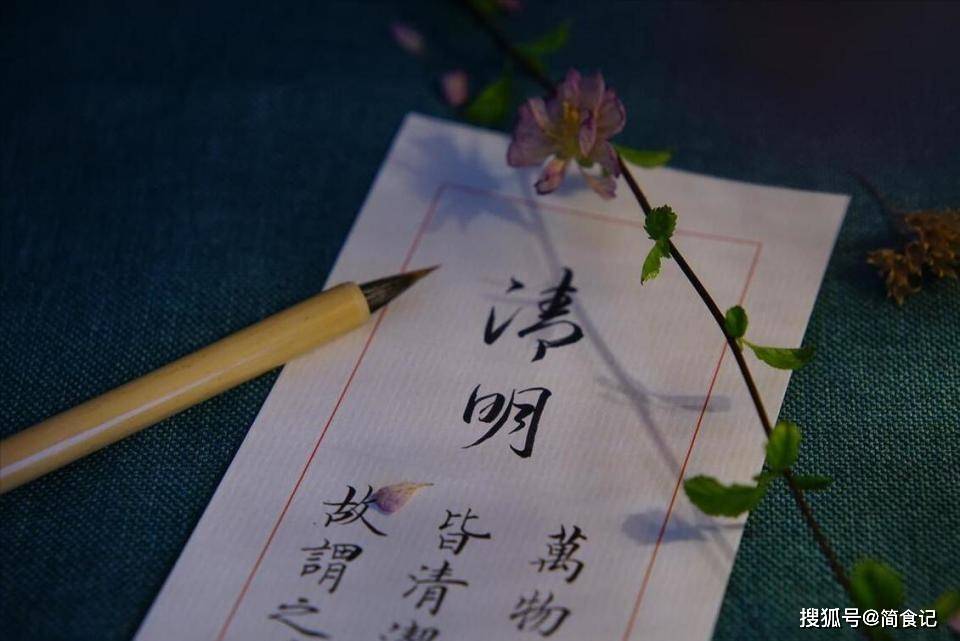 清明
萬物
皆清潔
故謂之
搜狐号@简食记